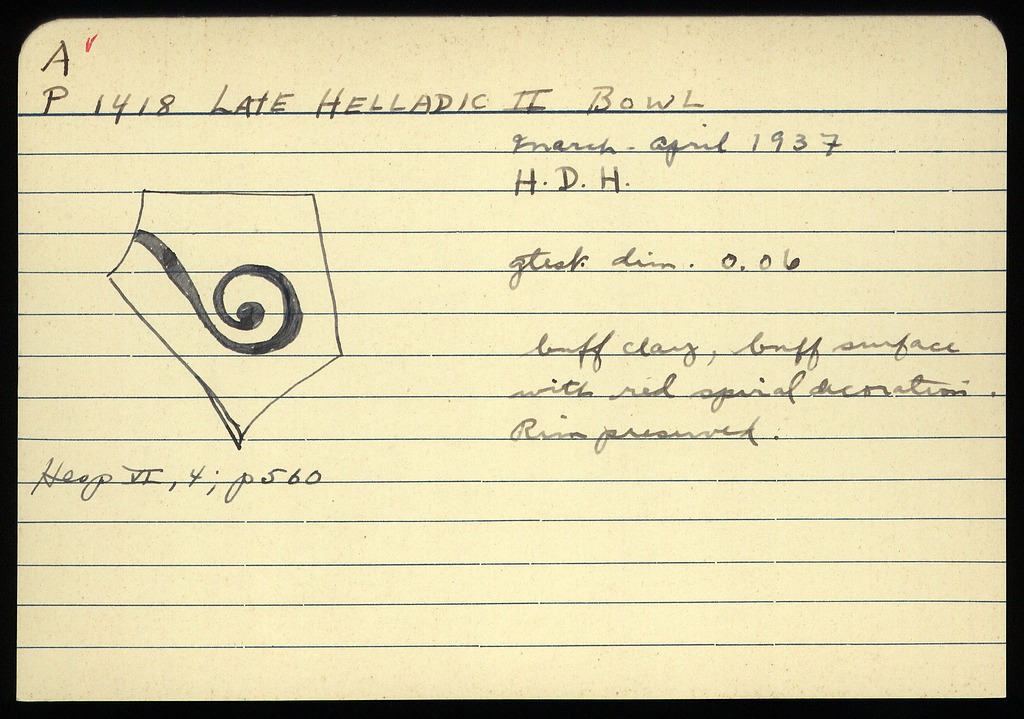 A
P 1418 LATE HELLADIC II BOWL
march - april 1937
H. D. H.
gtest dim. 0.06
buff clay, buff surface
with red spiral decoration.
Rim preserved.
Hesp VI, 4; p 560